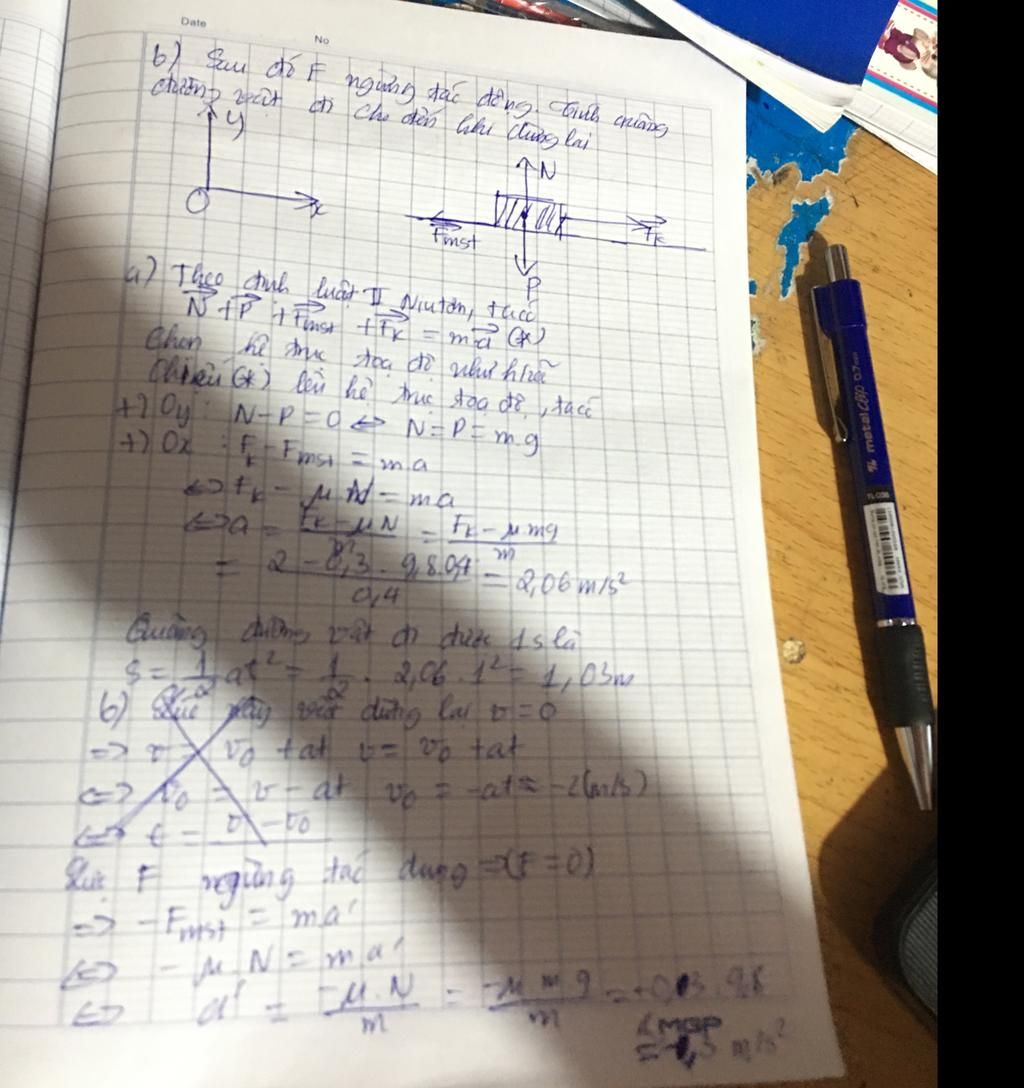 Date
No
b) Sau đó F ngừng tác dụng. Tính quãng
đường vật đi cho đến khi dừng lại
y
O
x
N
Fmst
Fk
P
a) Theo định luật II Niutơn, ta có
N + P + Fmst + Fk = ma (*)
Chọn hệ trục tọa độ như hình
Chiếu (*) lên hệ trục tọa độ, ta có
+) Oy : N - P = 0 <=> N = P = m.g
+) Ox : Fk - Fmst = ma
<=> Fk - μN = ma
<=> a = (Fk - μN)/m = (Fk - μmg)/m
= (2 - 0,3 . 9,8.0,4)/0,4 = 2,06 m/s²
Quãng đường vật đi được 1s là
S = 1/2 at² = 1/2 . 2,06 . 1² = 1,03m
b) Lúc này vật dừng lại v = 0
=> v = v₀ + at v = v₀ + at
<=> v₀ = v - at v₀ = -at = -2(m/s)
<=> t = v - v₀
Lực F ngừng tác dụng => (F = 0)
=> -Fmst = ma'
<=> -μN = ma'
<=> a' = -μ.N/m = -μmg/m
m/s²
metal Clip 0.7mm
TL 036